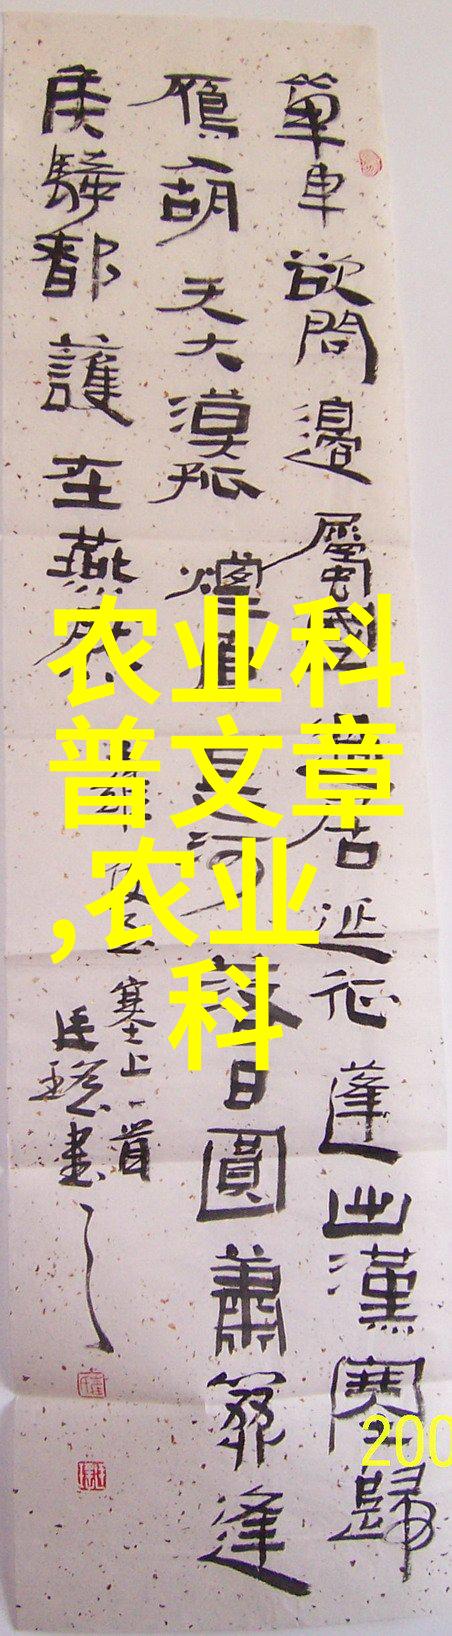 單車欲問邊屬國過居延征蓬出漢塞歸
雁入胡天大漠孤煙直長河落日圓蕭關逢
候騎都護在燕然
王維使至塞上一首
書
农业科
普文章
,农业
科
200